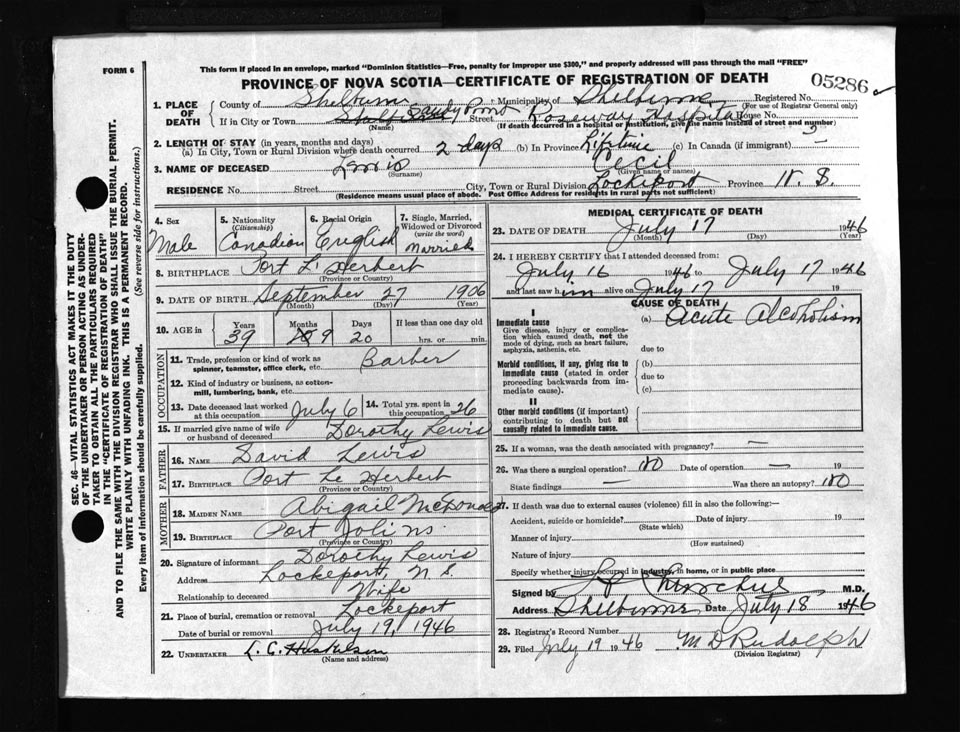 FORM 6
This form if placed in an envelope, marked "Dominion Statistics—Free, penalty for improper use $300," and properly addressed will pass through the mail "FREE"
PROVINCE OF NOVA SCOTIA—CERTIFICATE OF REGISTRATION OF DEATH
05286
1. PLACE OF DEATH
County of Shelburne Municipality of Shelburne Registered No.
(For use of Registrar General only)
If in City or Town Sandy Point Street Roseway Hospital House No.
(Name) (If death occurred in a hospital or institution, give the name instead of street and number)
2. LENGTH OF STAY (in years, months and days)
(a) In City, Town or Rural Division where death occurred 2 days (b) In Province Lifetime (c) In Canada (if immigrant) —
3. NAME OF DECEASED Lewis Cecil
(Surname) (Given name or names)
RESIDENCE No. Street City, Town or Rural Division Lockeport Province N. S.
(Residence means usual place of abode. Post Office Address for residents in rural parts not sufficient)
4. Sex Male
5. Nationality (Citizenship) Canadian
6. Racial Origin English
7. Single, Married, Widowed or Divorced (write the word) Married
8. BIRTHPLACE Port L'Herbert
(Province or Country)
9. DATE OF BIRTH September 27 1906
(Month) (Day) (Year)
10. AGE in Years Months Days If less than one day old
39 9 20 hrs. or min.
OCCUPATION
11. Trade, profession or kind of work as spinner, teamster, office clerk, etc. Barber
12. Kind of industry or business, as cotton-mill, lumbering, bank, etc.
13. Date deceased last worked at this occupation July 6
14. Total yrs. spent in this occupation 26
15. If married give name of wife or husband of deceased Dorothy Lewis
FATHER
16. NAME David Lewis
17. BIRTHPLACE Port Le Herbert
(Province or Country)
MOTHER
18. MAIDEN NAME Abigail McDonald
19. BIRTHPLACE Port Jolins
(Province or Country)
20. Signature of informant Dorothy Lewis
Address Lockeport, N. S.
Relationship to deceased Wife
21. Place of burial, cremation or removal Lockeport
Date of burial or removal July 19, 1946
22. UNDERTAKER L. C.
(Name and address)
MEDICAL CERTIFICATE OF DEATH
23. DATE OF DEATH July 17 1946
(Month) (Day) (Year)
24. I HEREBY CERTIFY that I attended deceased from:
July 16 1946 to July 17 1946
and last saw him alive on July 17
CAUSE OF DEATH
I
Immediate cause (a) Acute Alcoholism
Give disease, injury or complication which caused death, not the mode of dying, such as heart failure, asphyxia, asthenia, etc.
due to
Morbid conditions, if any, giving rise to immediate cause (stated in order proceeding backwards from immediate cause).
(b)
due to
(c)
II
Other morbid conditions (if important) contributing to death but not causally related to immediate cause.
25. If a woman, was the death associated with pregnancy? —
26. Was there a surgical operation? no Date of operation — 19
State findings — Was there an autopsy? no
27. If death was due to external causes (violence) fill in also the following:—
Accident, suicide or homicide? Date of injury 19
(State which)
Manner of injury
(How sustained)
Nature of injury
Specify whether injury occurred in industry, in home, or in public place
Signed by M.D.
Address Shelburne Date July 18 1946
28. Registrar's Record Number
29. Filed July 19 1946 M D Rudolph
(Division Registrar)
SEC. 46—VITAL STATISTICS ACT MAKES IT THE DUTY
OF THE UNDERTAKER OR PERSON ACTING AS UNDER-
TAKER TO OBTAIN ALL THE PARTICULARS REQUIRED
IN THE "CERTIFICATE OF REGISTRATION OF DEATH"
AND TO FILE THE SAME WITH THE DIVISION REGISTRAR WHO SHALL ISSUE THE BURIAL PERMIT.
WRITE PLAINLY WITH UNFADING INK. THIS IS A PERMANENT RECORD.
Every item of information should be carefully supplied. (See reverse side for instructions.)